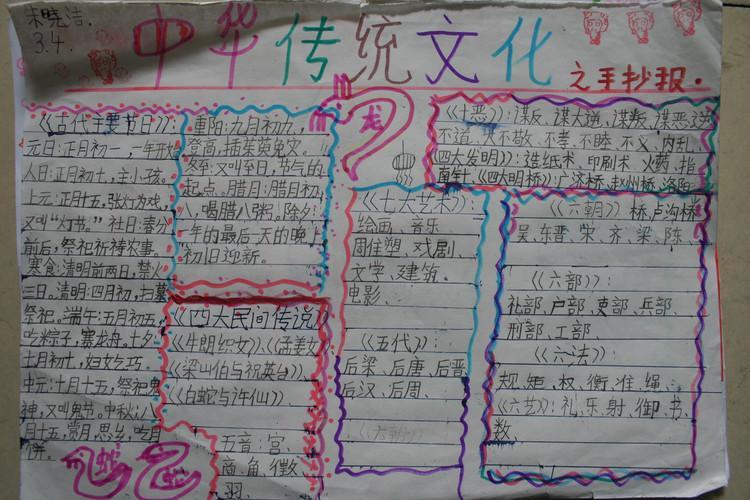 朱晓洁
3.4.
中华传统文化
之手抄报.
《古代主要节日》:
元日:正月初一,一年开始
人日:正月初七,主小孩。
上元:正月十五,张灯为戏,
又叫“灯节。”社日:春分
前后,祭祀祈祷农事。
寒食:清明前两日,禁火
三日。清明:四月初,扫墓
祭祀。端午:五月初五,
吃粽子,赛龙舟。七夕:
七月初七,妇女乞巧。
中元:七月十五,祭祀鬼
神,又叫鬼节。中秋:八
月十五,赏月,思乡,吃月
饼。
重阳:九月初九,
登高,插茱萸免灾。
冬至:又叫至日,节气的
起点。腊月:腊月初
八,喝腊八粥。除夕:
一年的最后一天的晚上
初旧迎新。
《四大民间传说》
《牛朗织女》《孟姜女》
《梁山伯与祝英台》
《白蛇与许仙》
五音:宫、
商、角、徵、
羽.
龙
《七大艺术》:
绘画、音乐
周佳塑、戏剧、
文学、建筑、
电影、
《五代》:
后梁、后唐、后晋
后汉、后周、
《六朝》
《十恶》:谋反、谋大逆、谋叛、谋恶逆
不道、大不敬、不孝、不睦、不义、内乱
《四大发明》:造纸术、印刷术、火药、指
南针、《四大明桥》:广济桥、赵州桥、洛阳
《六朝》 桥、卢沟桥
吴、东晋、宋、齐、梁、陈、
《六部》:
礼部、户部、吏部、兵部、
刑部、工部、
《六法》:
规、矩、权、衡、准、绳、
《六艺》:礼、乐、射、御、书、
数、